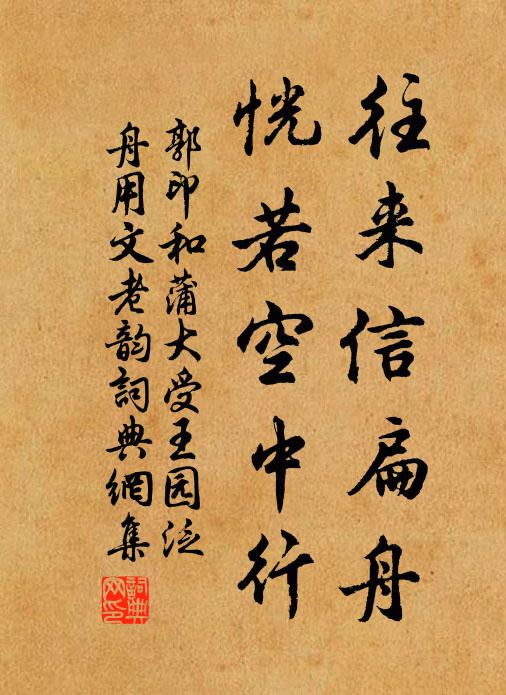 往来信扁舟
恍若空中行
郭印和蒲大受王园泛
舟用文老韵詞典網集
詞典
网印